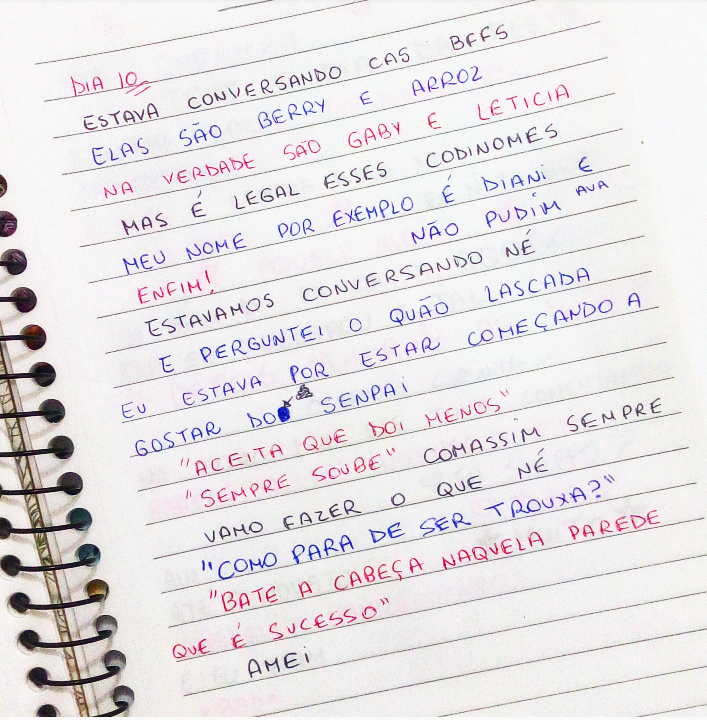 DIA 10
ESTAVA CONVERSANDO CAS BFFS
ELAS SÃO BERRY E ARROZ
NA VERDADE SÃO GABY E LETICIA
MAS É LEGAL ESSES CODINOMES
MEU NOME POR EXEMPLO É DIANI E
NÃO PUDIM AVA
ENFIM!
ESTAVAMOS CONVERSANDO NÉ
E PERGUNTEI O QUÃO LASCADA
EU ESTAVA POR ESTAR COMEÇANDO A
GOSTAR DO SENPAI
"ACEITA QUE DOI MENOS"
"SEMPRE SOUBE" COMASSIM SEMPRE
VAMO FAZER O QUE NÉ
"COMO PARA DE SER TROUXA?"
"BATE A CABEÇA NAQUELA PAREDE
QUE É SUCESSO"
AMEI